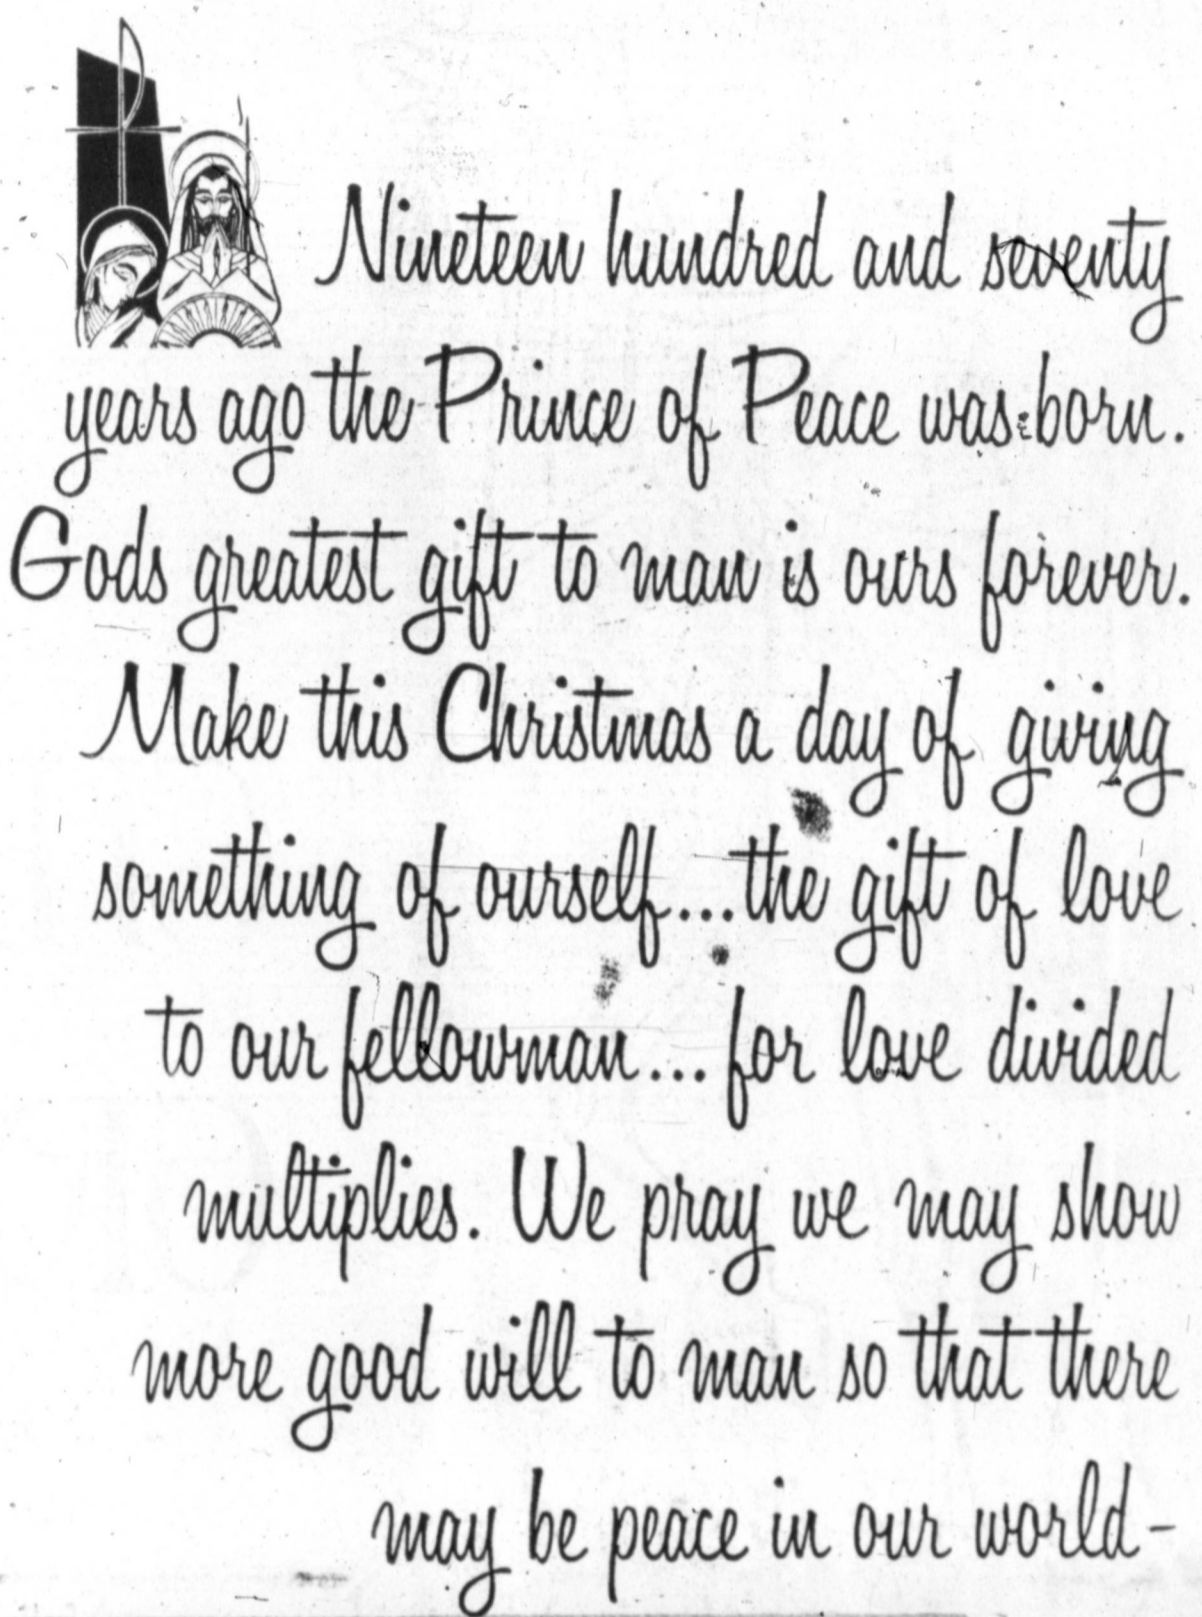 Nineteen hundred and seventy
years ago the Prince of Peace was born.
Gods greatest gift to man is ours forever.
Make this Christmas a day of giving
something of ourself...the gift of love
to our fellowman... for love divided
multiplies. We pray we may show
more good will to man so that there
may be peace in our world-